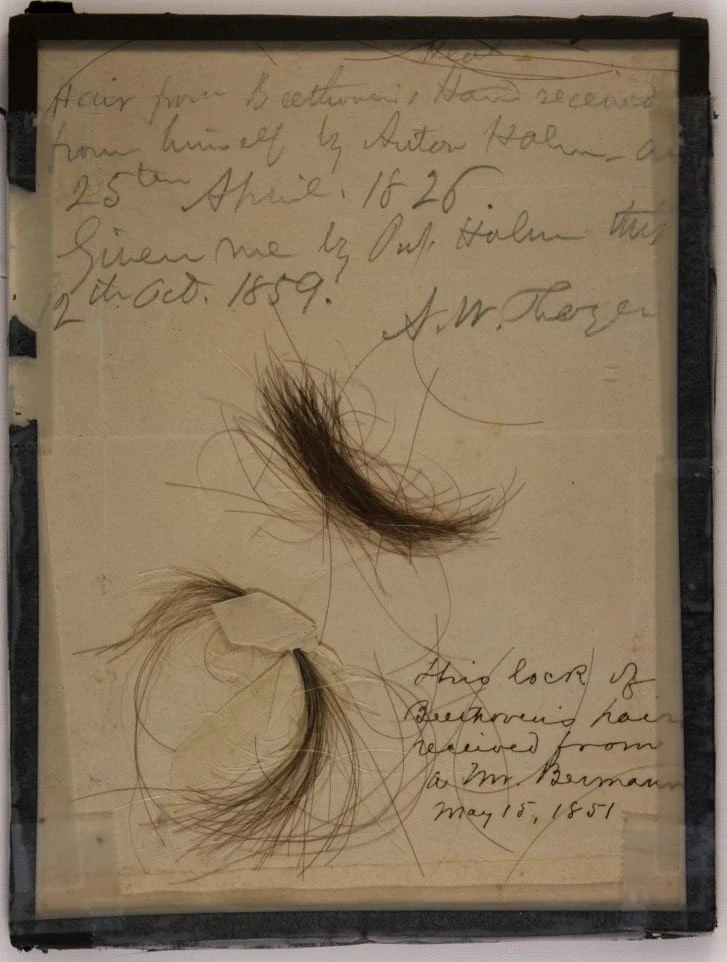 Head
Hair from Beethoven's Hand received
from himself by Anton Halm
25ten April. 1826
Given me by Prof. Halm this
12th Oct. 1859.
A. W. Thayer
This lock of
Beethoven's hair
received from
a Mr. Bermann
May 15, 1851